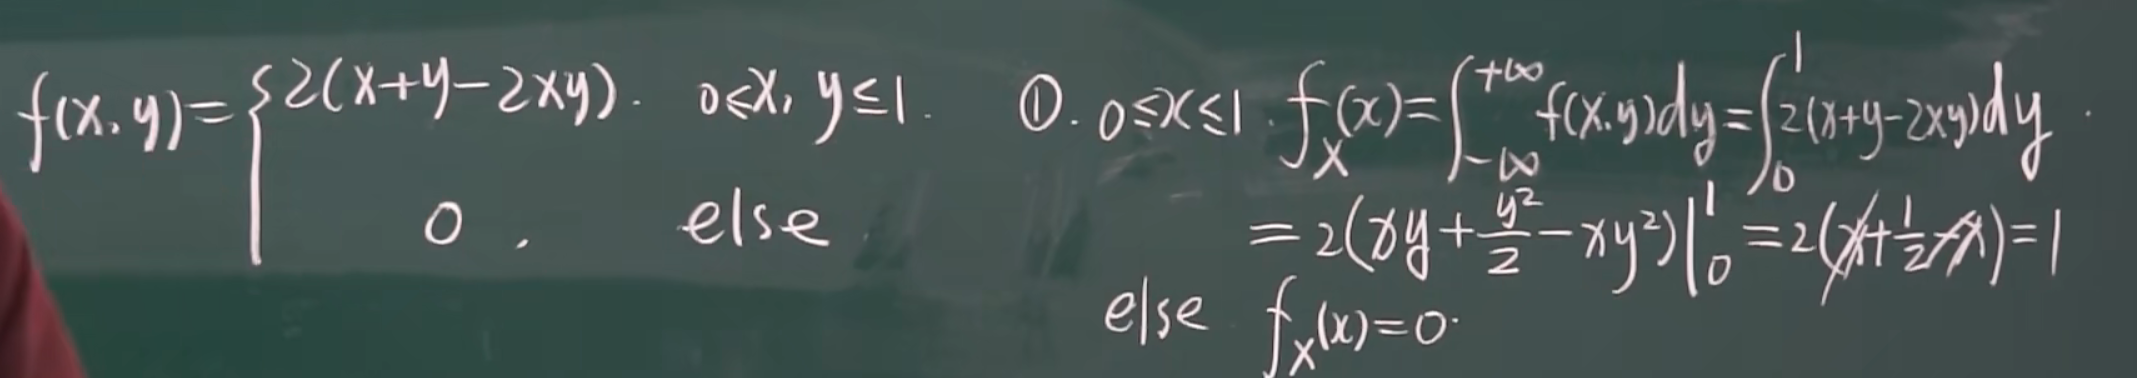 f(x,y)={2(x+y-2xy). 0≤x, y≤1.
0, else
①. 0≤x≤1. f_X(x)=∫_{-∞}^{+∞}f(x,y)dy=∫_0^1 2(x+y-2xy)dy.
=2(xy+y²/2-xy²)|_0^1=2(x+1/2-x)=1
else f_X(x)=0.